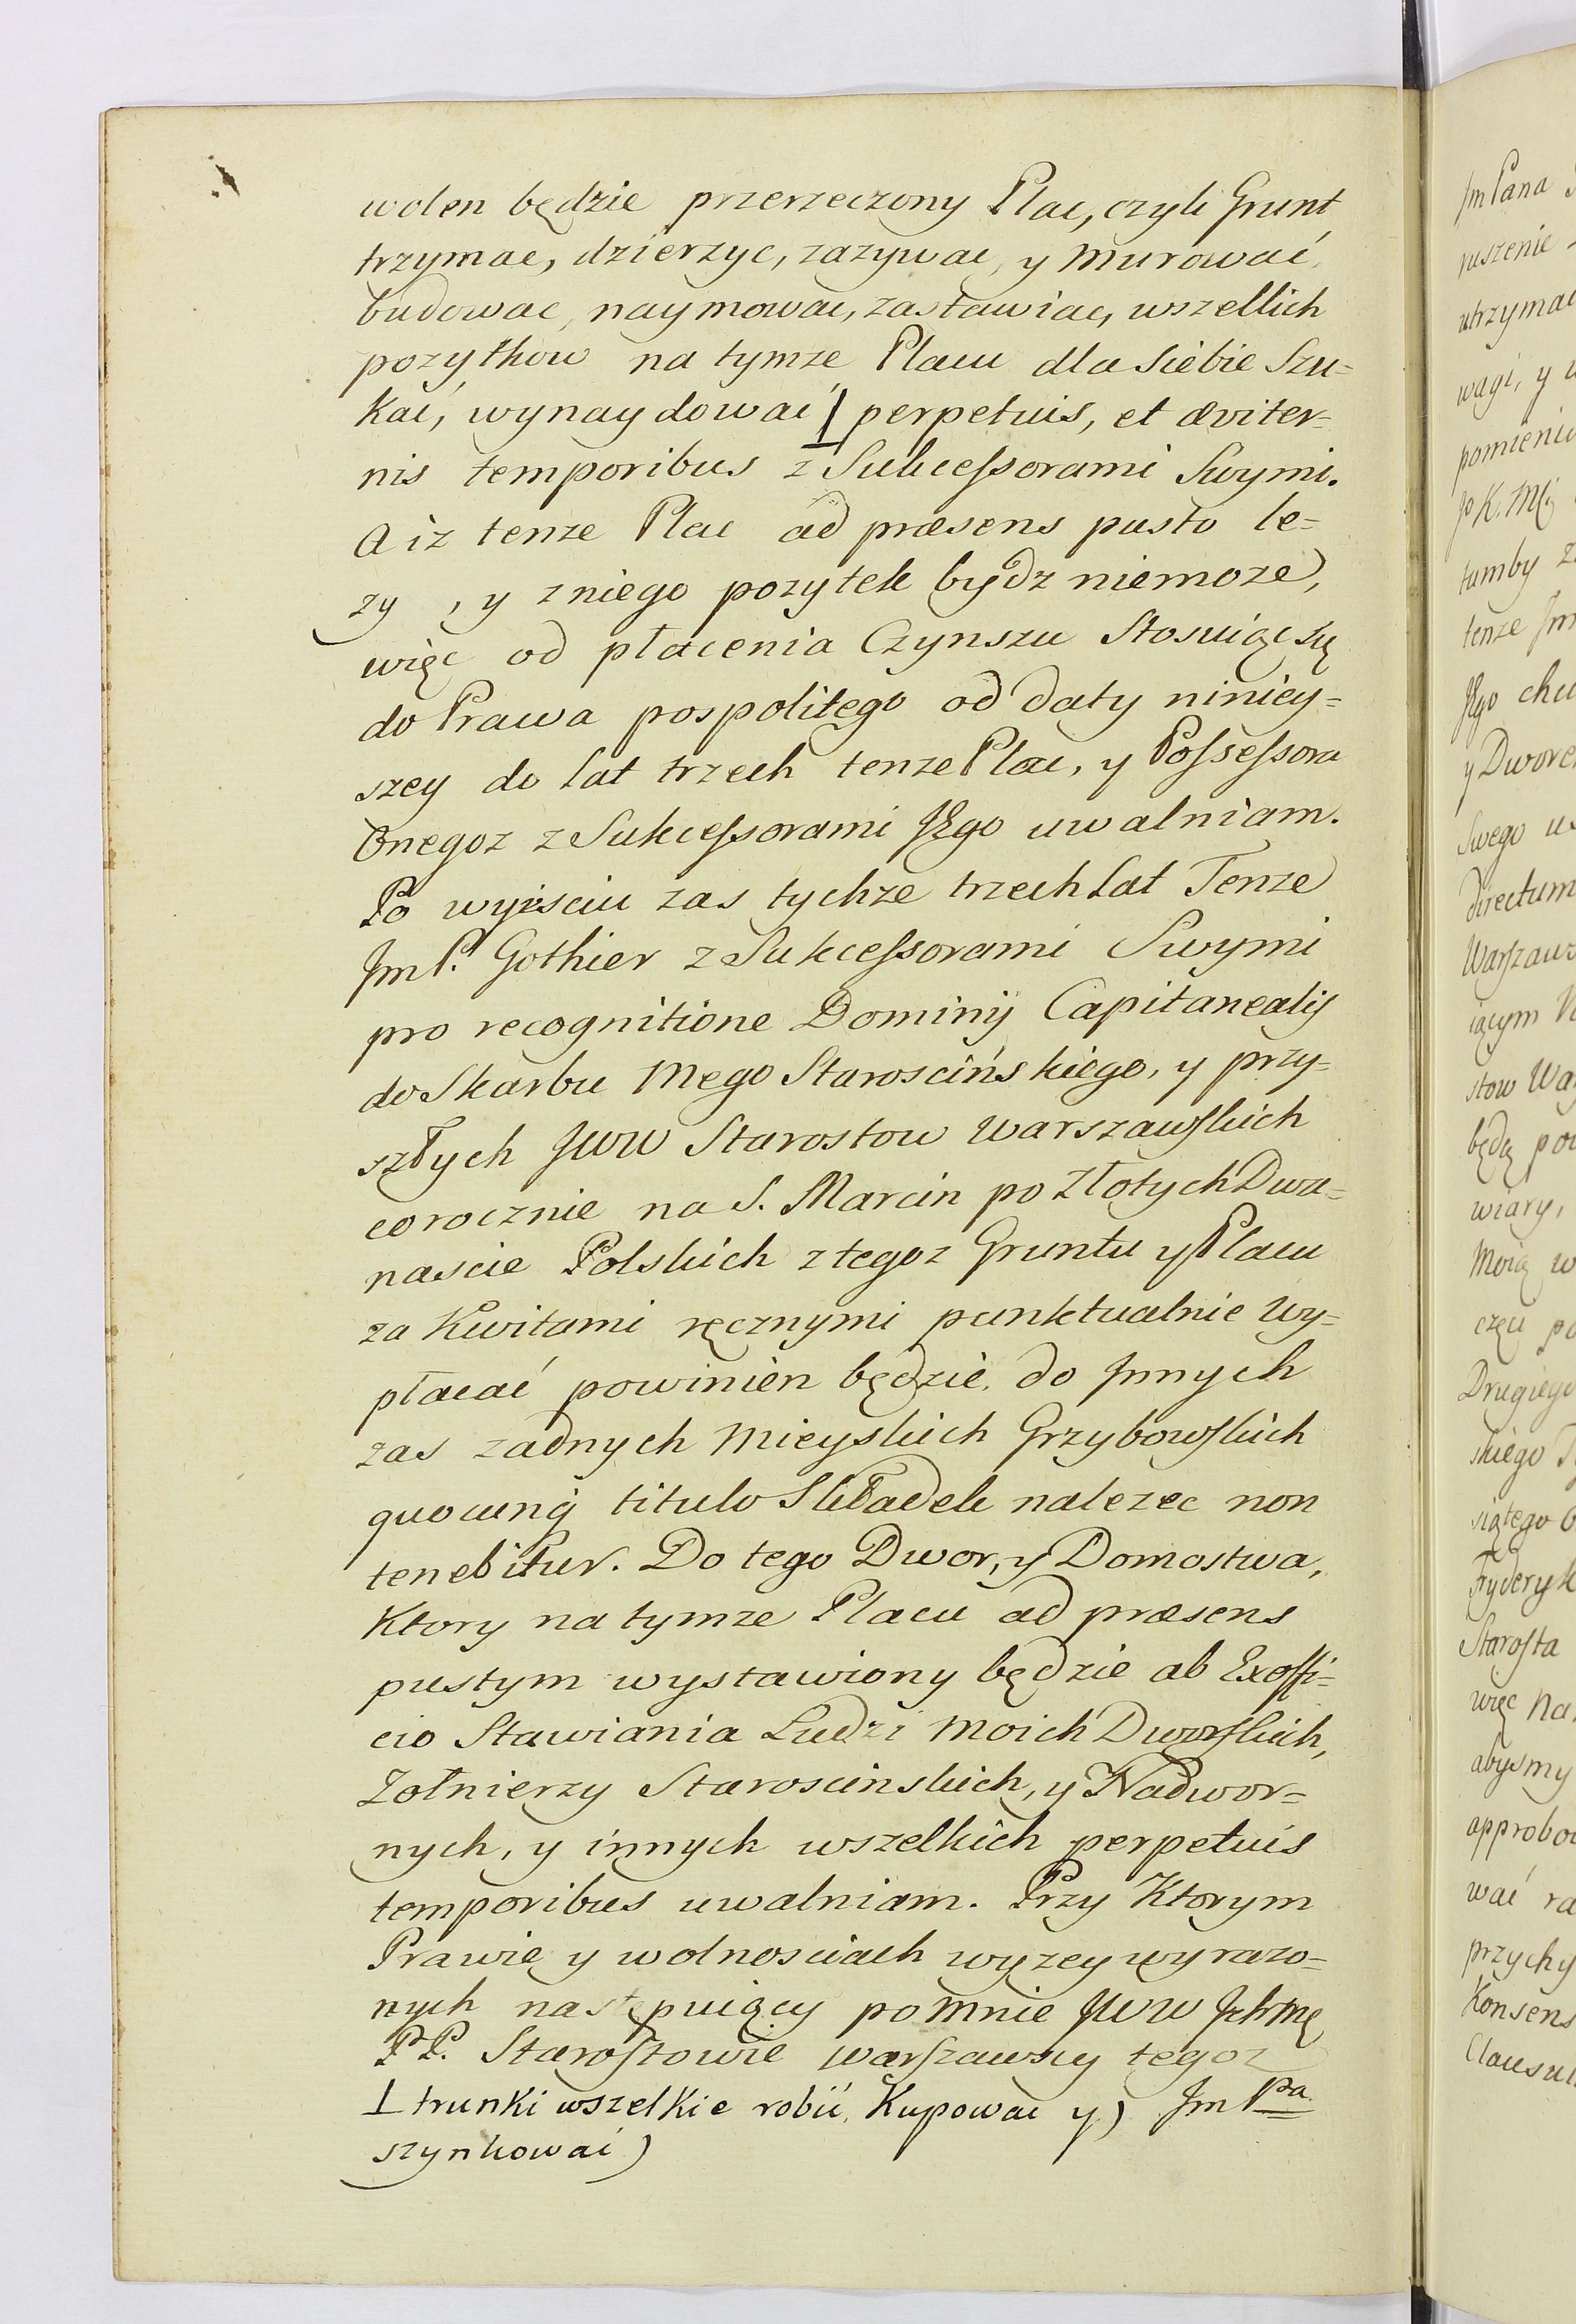 wolen będzie przerzeczony Plac, czyli Grunt
trzymac, dzierzyc, zazywac, y Murować,
budowac, naymowac, zastawiac, wszelkich
pozytkow na tymze Placu dla Siebie Szu=
kać, wynaydować ⊥ perpetuis, et æviter=
nis temporibus z Sukceſsorami Swymi.
A iz tenze Plac ad præsens pusto le=
zy, y z niego pozytek bydz niemoze,
więc od płacenia Czynszu Stosuiąc się
do Prawa pospolitego od daty niniey=
szey do lat trzech tenze Plac, y Poſseſsora
Onegoz z Sukceſsorami JEgo uwalniam.
Po wyiściu zas tychze trzech Lat Tenze
JmP. Gothier z Sukceſsorami Swymi
pro recognitione Dominij Capitanealis
do Skarbu Mego Starościńskiego, y przy=
szłych JWW Starostow Warszawſkich
corocznie na S. Marcin po Złotych Dwa=
nascie Polskich z tegoz Gruntu y Placu
za Kwitami ręcznymi punktualnie Wy=
płacać powinien będzie, do Jnnych
zas zadnych Mieyskich Grzybowſkich
quocunq titulo Składek nalezec non
tenebitur. Do tego Dwor, y Domostwa,
Ktory na tymze Placu ad præsens
pustym wystawiony będzie ab Exoffi=
cio Stawiania Ludzi Moich Dworſkich,
Zołnierzy Staroscinskich, y Nadwor=
nych, y innych wszelkich perpetuis
temporibus uwalniam. Przy Ktorym
Prawie y wolnosciach wyzey wyrazo=
nych następuiący po Mnie JWW
PP. Staroſtowie Warſzawscy tegoz
⊥ trunki wszelkie robić, Kupowac y) Jm Pa
szynkować)
JmPana
ruszenie
utrzymac
wagi, y
JoK. Mci
tumby
tenze Jm
JEgo
y Dwore
Swego
directum
Warſzaw
iącym
stow Wa
będą po
wiary,
Moią w
częci po
Drugiego
skiego
siątego
Fryderyk
Staroſta
więc Na
abysmy
approbo
wać ra
przychy
Konsens
Clausul